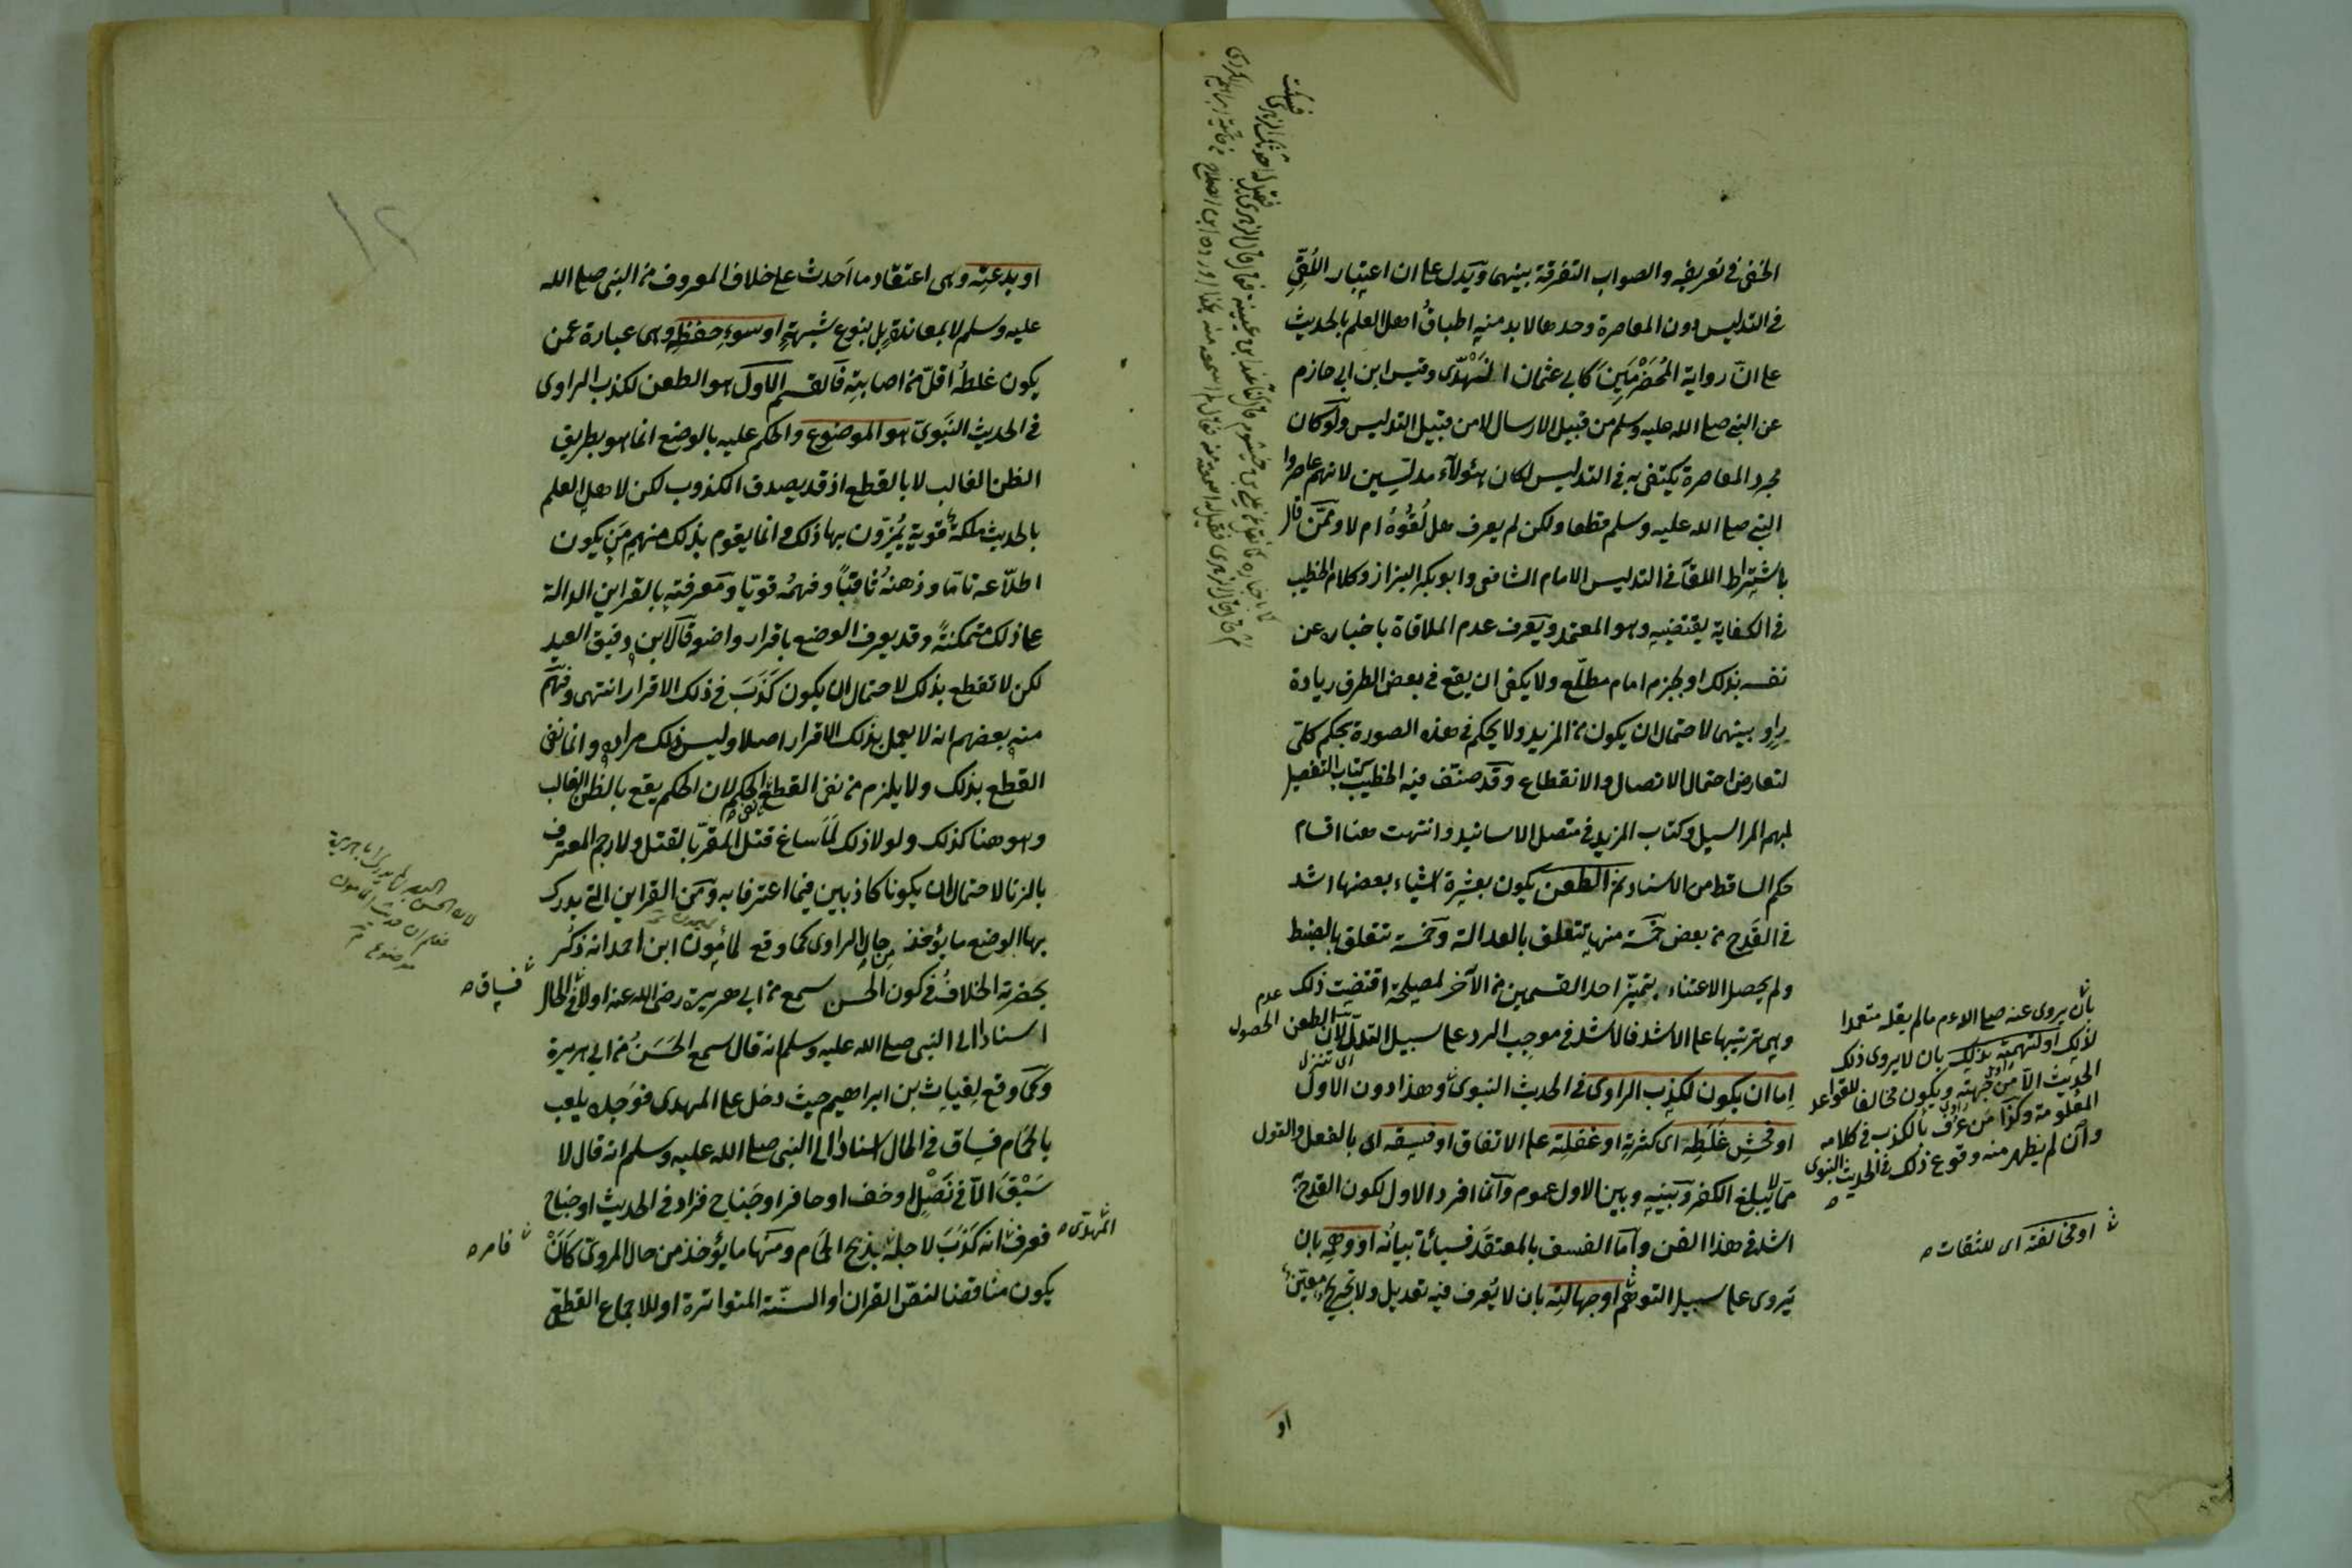 الخفى فى تعريفه والصواب التفرقة بينهما ويدل على ان اعتبار اللقى
فى التدليس دون المعاصرة وحدها لابد منه اطباق اهل العلم بالحديث
على ان رواية المخضرمين كابى عثمان النهدى وقيس ابن ابى حازم
عن النبى صلى الله عليه وسلم من قبيل الارسال لا من قبيل التدليس ولو كان
مجرد المعاصرة يكتفى به فى التدليس لكان هؤلاء مدلسين لانهم عاصروا
النبى صلى الله عليه وسلم قطعا ولكن لم يعرف هل لقوه ام لا وممن قال
باشتراط اللقاء فى التدليس الامام الشافعى وابو بكر البزاز وكلام الخطيب
فى الكفاية يقتضيه وهو المعتمد ويعرف عدم الملاقاة باخباره عن
نفسه بذلك او بجزم امام مطلع ولا يكفى ان يقع فى بعض الطرق زيادة
راو بينهما لاحتمال ان يكون من المزيد ولا يحكم فى هذه الصورة بحكم كلى
لتعارض احتمال الاتصال والانقطاع وقد صنف فيه الخطيب كتاب التفصيل
لمبهم المراسيل وكتاب المزيد فى متصل الاسانيد وانتهت هنا اقسام
حكم الساقط من الاسناد ثم الطعن يكون بعشرة اشياء بعضها اشد
فى القدح من بعض خمسة منها تتعلق بالعدالة وخمسة تتعلق بالضبط
ولم يحصل الاعتناء بتميز احد القسمين من الآخر لمصلحة اقتضت ذلك
وهى ترتيبها على الاشد فالاشد فى موجب الرد على سبيل التدلى لان الطعن
اما ان يكون لكذب الراوى فى الحديث النبوى وهذا دون الاول
او فحش غلطه اى كثرته او غفلته على الاتقان او فسقه اى بالفعل والقول
مما لا يبلغ الكفر وبينه وبين الاول عموم وانما افرد الاول لكون القدح به
اشد فى هذا الفن واما الفسق بالمعتقد فسيأتى بيانه او وهمه بان
يروى على سبيل التوهم او جهالته بان لا يعرف فيه تعديل ولا تجريح معين
عدم
الحصول
اى تنزل
بان يروى عنه صلى الله عم ما لم يقله متعمدا
لذلك او تهمته بذلك بان لا يروى ذلك
الحديث الا من جهته ويكون مخالفا للقواعد
المعلومة وكذا من عرف بالكذب فى كلامه
وان لم يظهر منه وقوع ذلك فى الحديث النبوى
او مخالفته اى للثقات
او
١٢
او بدعته وهى اعتقاد ما احدث على خلاف المعروف من النبى صلى الله
عليه وسلم لا بمعاندة بل بنوع شبهة او سوء حفظه وهى عبارة عمن
يكون غلطه اقل من اصابته فالقسم الاول هو الطعن لكذب الراوى
فى الحديث النبوى هو الموضوع والحكم عليه بالوضع انما هو بطريق
الظن الغالب لا بالقطع اذ قد يصدق الكذوب لكن لاهل العلم
بالحديث ملكة قوية يميزون بها ذلك وانما يقوم بذلك منهم من يكون
اطلاعه تاما وذهنه ثاقبا وفهمه قويا ومعرفته بالقراين الدالة
على ذلك متمكنة وقد يعرف الوضع باقرار واضعه قال ابن دقيق العيد
لكن لا تقطع بذلك لاحتمال ان يكون كذب فى ذلك الاقرار انتهى وفهم
منه بعضهم انه لا يعمل بذلك الاقرار اصلا وليس ذلك مراده وانما نفى
القطع بذلك ولا يلزم من نفى القطع نفى الحكم لان الحكم يقع بالظن الغالب
وهو هنا كذلك ولولا ذلك لما ساغ قتل المقر بالقتل ولا رجم المعترف
بالزنا لاحتمال ان يكونا كاذبين فيما اعترفا به ومن القراين التى يدرك
بها الوضع ما يؤخذ من حال الراوى كما وقع لمأمون ابن احمد انه ذكر
بحضرته الخلاف فى كون الحسن سمع من ابى هريرة رضى الله عنه اولا فى الحال
اسنادا الى النبى صلى الله عليه وسلم انه قال سمع الحسن من ابى هريرة
وكما وقع لغياث بن ابراهيم حيث دخل على المهدى فوجده يلعب
بالحمام فساق فى الحال اسنادا الى النبى صلى الله عليه وسلم انه قال لا
سبق الا فى نصل او خف او حافر او جناح فزاد فى الحديث او جناح
فعرف انه كذب لاجله بذبح الحمام ومنها ما يؤخذ من حال المروى كان
يكون مناقضا لنص القران او السنة المتواترة او للاجماع القطعى
فساق
المهدى
فامر